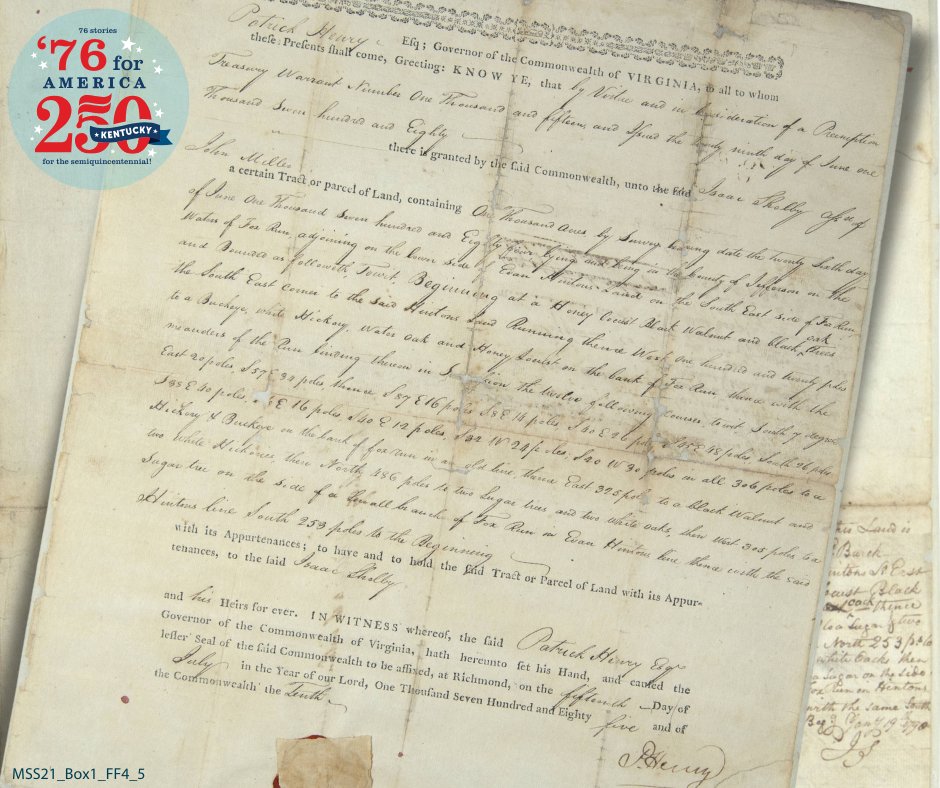 76 stories
'76 for
AMERICA
250
KENTUCKY
for the semiquincentennial!
Patrick Henry Esq; Governor of the Commonwealth of VIRGINIA, to all to whom
these Presents shall come, Greeting: KNOW YE, that by Virtue and in consideration of a Preemption
Treasury Warrant Number One Thousand and fifteen, and Issued the twenty ninth day of June one
Thousand Seven hundred and Eighty there is granted by the said Commonwealth, unto the said Isaac Shelby assee of
John Miller
a certain Tract or parcel of Land, containing One Thousand Acres by Survey bearing date the twenty sixth day
of June One Thousand Seven hundred and Eighty four lying and being in the County of Jefferson on the
Waters of Fox Run, adjoining on the lower side of Evan Hintons Land on the South East side of Fox Run,
and Bounded as followeth, Towit, Beginning at a Honey Locust Black Walnut and black oak trees
the South East corner to the said Hintons Land Running thence West one hundred and twenty poles
to a Buckeye, white Hickory, Water oak and Honey Locust on the bank of Fox Run, thence with the
meanders of the Run binding therein in the twelve following courses, towit, South 7 degrees
East 20 poles, S 57 E 34 poles thence S 87 E 16 poles S 8 E 14 poles, S 40 E 26 poles 48 poles, South 26 poles
S 38 E 40 poles, E 16 poles S 40 E 12 poles, S 32 W 24 poles, S 20 W 30 poles in all 306 poles to a
Hickory & Buckeye on the bank of fox run in an old line, thence East 325 poles to a black Walnut and
two White Hickories then North 486 poles to two Sugar trees and two white oaks, then West 305 poles to a
Sugar tree on the side of a small branch of Fox Run in Evan Hintons line thence with the said
Hintons line South 253 poles to the Beginning
with its Appurtenances; to have and to hold the said Tract or Parcel of Land with its Appur-
tenances, to the said Isaac Shelby
and his Heirs for ever. IN WITNESS whereof, the said Patrick Henry Esqr
Governor of the Commonwealth of Virginia, hath hereunto set his Hand, and caused the
lesser Seal of the said Commonwealth to be affixed, at Richmond, on the fifteenth Day of
July in the Year of our Lord, One Thousand Seven Hundred and Eighty five and of
the Commonwealth the Tenth
P. Henry
this Land is
Burch
Hintons So East
Locust Black
oak thence
to a Sugar & two
North 253 po to
white oaks then
a Sugar on the side
fox run on Hintons
with the same South
Beg
J S
MSS21_Box1_FF4_5